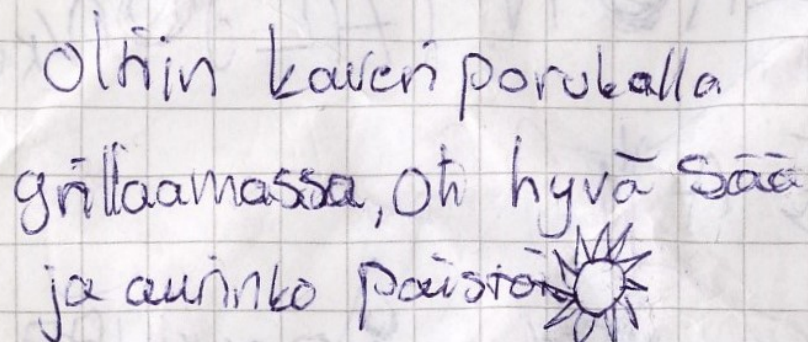 Oltiin kaveri porukalla
grillaamassa, oli hyvä sää
ja aurinko paistoi